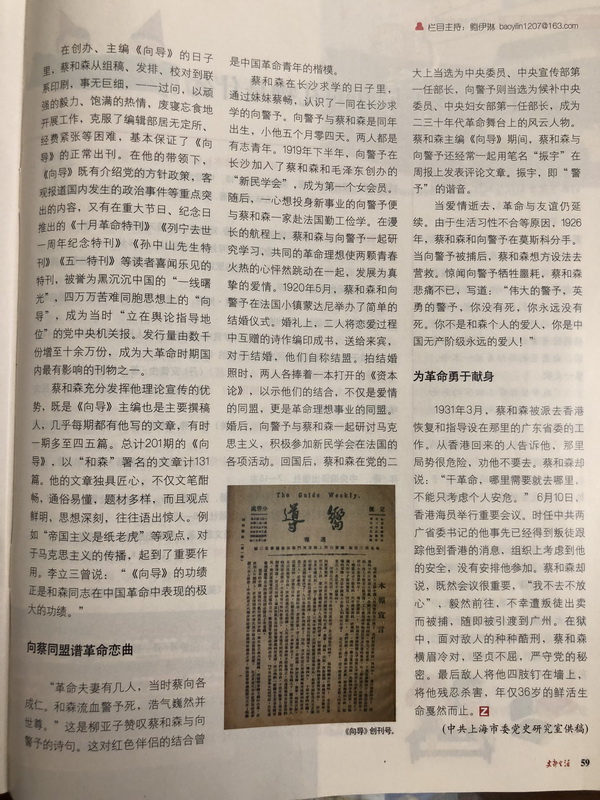 栏目主持：鲍伊琳 baoyilin1207@163.com
在创办、主编《向导》的日子
里，蔡和森从组稿、发排、校对到联
系印刷，事无巨细，一一过问，以顽
强的毅力、饱满的热情，废寝忘食地
开展工作，克服了编辑部居无定所、
经费紧张等困难，基本保证了《向
导》的正常出刊。在他的带领下，
《向导》既有介绍党的方针政策，客
观报道国内发生的政治事件等重点突
出的内容，又有在重大节日、纪念日
推出的《十月革命特刊》《列宁去世
一周年纪念特刊》《孙中山先生特
刊》《五一特刊》等读者喜闻乐见的
特刊，被誉为黑沉沉中国的“一线曙
光”，四万万苦难同胞思想上的“向
导”，成为当时“立在舆论指导地
位”的党中央机关报。发行量由数千
份增至十余万份，成为大革命时期国
内最有影响的刊物之一。
蔡和森充分发挥他理论宣传的优
势，既是《向导》主编也是主要撰稿
人，几乎每期都有他写的文章，有时
一期多至四五篇。总计201期的《向
导》，以“和森”署名的文章计131
篇。他的文章独具匠心，不仅文笔酣
畅，通俗易懂，题材多样，而且观点
鲜明，思想深刻，往往语出惊人。例
如“帝国主义是纸老虎”等观点，对
于马克思主义的传播，起到了重要作
用。李立三曾说：“《向导》的功绩
正是和森同志在中国革命中表现的极
大的功绩。”
向蔡同盟谱革命恋曲
“革命夫妻有几人，当时蔡向各
成仁。和森流血警予死，浩气巍然并
世尊。”这是柳亚子赞叹蔡和森与向
警予的诗句。这对红色伴侣的结合曾
是中国革命青年的楷模。
蔡和森在长沙求学的日子里，
通过妹妹蔡畅，认识了一同在长沙求
学的向警予。向警予与蔡和森是同年
出生，小他五个月零四天。两人都是
有志青年。1919年下半年，向警予在
长沙加入了蔡和森和毛泽东创办的
“新民学会”，成为第一个女会员。
随后，一心想投身新事业的向警予便
与蔡和森一家赴法国勤工俭学。在漫
长的航程上，蔡和森与向警予一起研
究学习，共同的革命理想使两颗青春
火热的心怦然跳动在一起，发展为真
挚的爱情。1920年5月，蔡和森和向
警予在法国小镇蒙达尼举办了简单的
结婚仪式。婚礼上，二人将恋爱过程
中互赠的诗作编印成书，送给来宾，
对于结婚，他们自称结盟。拍结婚
照时，两人各捧着一本打开的《资本
论》，以示他们的结合，不仅是爱情
的同盟，更是革命理想事业的同盟。
婚后，向警予与蔡和森一起研讨马克
思主义，积极参加新民学会在法国的
各项活动。回国后，蔡和森在党的二
The Guide Weekly.
嚮導
週報
本報宣言
《向导》创刊号。
大上当选为中央委员、中央宣传部第
一任部长，向警予则当选为候补中央
委员、中央妇女部第一任部长，成为
二三十年代革命舞台上的风云人物。
蔡和森主编《向导》期间，蔡和森与
向警予还经常一起用笔名“振宇”在
周报上发表评论文章。振宇，即“警
予”的谐音。
当爱情逝去，革命与友谊仍延
续。由于生活习性不合等原因，1926
年，蔡和森和向警予在莫斯科分手。
当向警予被捕后，蔡和森想方设法去
营救。惊闻向警予牺牲噩耗，蔡和森
悲痛不已，写道：“伟大的警予，英
勇的警予，你没有死，你永远没有
死。你不是和森个人的爱人，你是中
国无产阶级永远的爱人！”
为革命勇于献身
1931年3月，蔡和森被派去香港
恢复和指导设在那里的广东省委的工
作。从香港回来的人告诉他，那里
局势很危险，劝他不要去。蔡和森却
说：“干革命，哪里需要就去哪里，
不能只考虑个人安危。” 6月10日，
香港海员举行重要会议。时任中共两
广省委书记的他事先已经得到叛徒跟
踪他到香港的消息，组织上考虑到他
的安全，没有安排他参加。蔡和森却
说，既然会议很重要，“我不去不放
心”，毅然前往，不幸遭叛徒出卖
而被捕，随即被引渡到广州。在狱
中，面对敌人的种种酷刑，蔡和森
横眉冷对，坚贞不屈，严守党的秘
密。最后敌人将他四肢钉在墙上，
将他残忍杀害，年仅36岁的鲜活生
命戛然而止。
(中共上海市委党史研究室供稿)
59